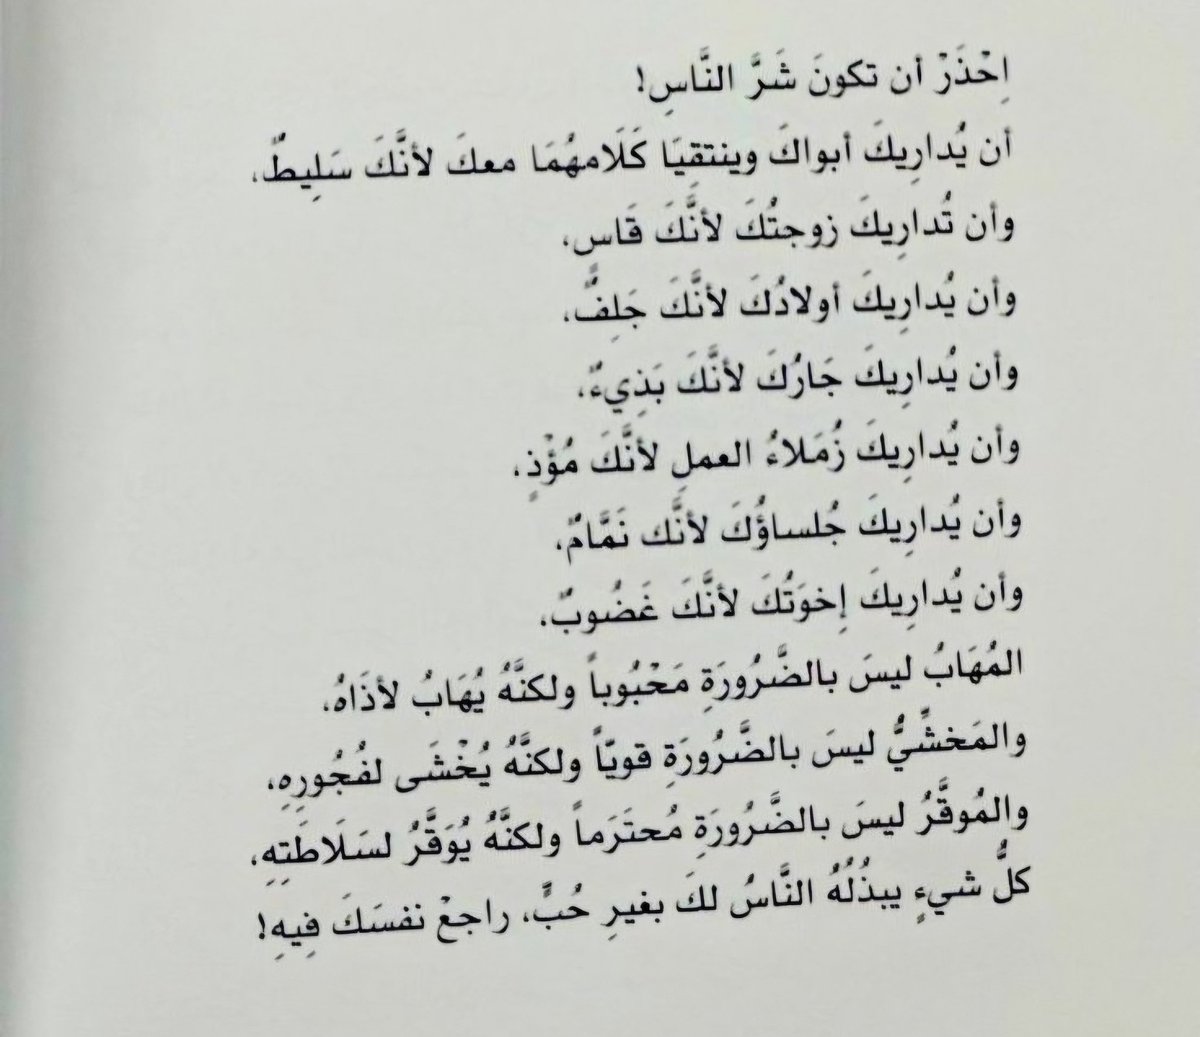 اِحْذَرْ أن تكونَ شَرَّ النَّاسِ!
أن يُدارِيكَ أبواكَ وينتقِيَا كَلَامهُمَا معكَ لأنَّكَ سَلِيطٌ،
وأن تُدارِيكَ زوجتُكَ لأنَّكَ قَاسٍ،
وأن يُدارِيكَ أولادُكَ لأنَّكَ جَلِفٌ،
وأن يُدارِيكَ جَارُكَ لأنَّكَ بَذِيءٌ،
وأن يُدارِيكَ زُمَلاءُ العملِ لأنَّكَ مُؤْذٍ،
وأن يُدارِيكَ جُلساؤُكَ لأنَّك نَمَّامٌ،
وأن يُدارِيكَ إِخوَتُكَ لأنَّكَ غَضُوبٌ،
المُهَابُ ليسَ بالضَّرُورَةِ مَحْبُوباً ولكنَّهُ يُهَابُ لأذَاهُ،
والمَخشِّيُّ ليسَ بالضَّرُورَةِ قويّاً ولكنَّهُ يُخْشَى لفُجُورِهِ،
والمُوقَّرُ ليسَ بالضَّرُورَةِ مُحتَرَماً ولكنَّهُ يُوَقَّرُ لسَلَاطَتِهِ،
كلُّ شيءٍ يبذُلُهُ النَّاسُ لكَ بغيرِ حُبٍّ، راجعْ نفسَكَ فِيهِ!